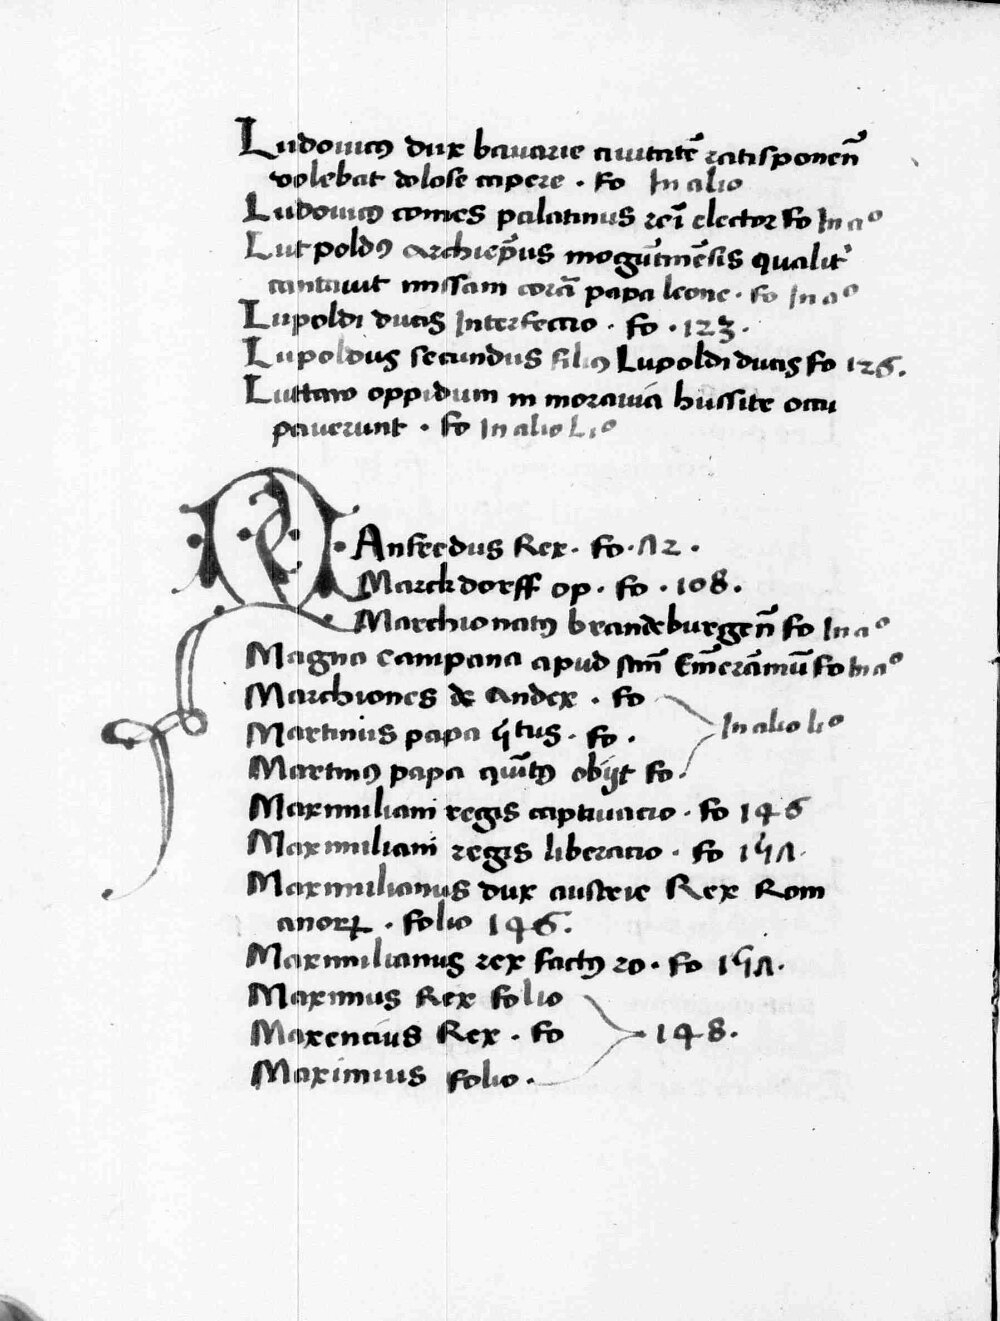 Ludouicꝰ dux bauarie ciuitatē ratisponen̄
volebat dolose capere . fo In alio
Ludouicꝰ comes palatinus reī elector fo In aº
Lutpoldꝰ archiep̄us mogūtinēsis qualitʼ
cantauit missam corā papa leone . fo In aº
Lupoldi ducis Interfectio . fo . 123 .
Lupoldus secundus filiꝰ Lupoldi ducis fo 126 .
Luttaw oppidum in morauia hussite occu
pauerunt . fo In alio Liº
MAnfredus Rex . fo . 72 .
Marckdorff op . fo . 108 .
Marchionatꝰ brandeburgen̄ fo In aº
Magna Campana apud sm̄ Em̄eramū fo In aº
Marchiones de Andex . fo
Martinus papa q̄tus . fo . In alio liº
Martinꝰ papa quītꝰ obijt fo .
Maximiliani regis captiuatio . fo 146
Maximiliani regis liberatio . fo 147 .
Maximilianus dux austrie Rex Rom
anoꝝ . folio 146 .
Maximilianus rex factꝰ ro . fo 147 .
Maximus Rex folio
Maxencius Rex . fo 148 .
Maximius folio .